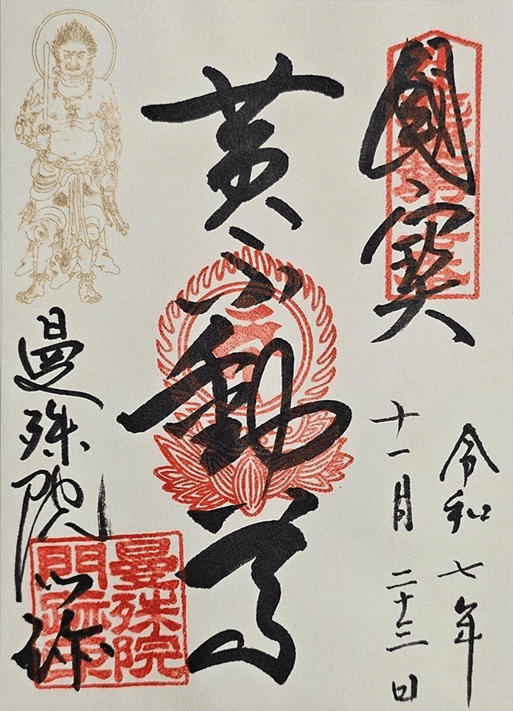 國寳
令和七年
十一月二十三日
黄不動尊
曼殊院
門跡
曼殊院
門跡